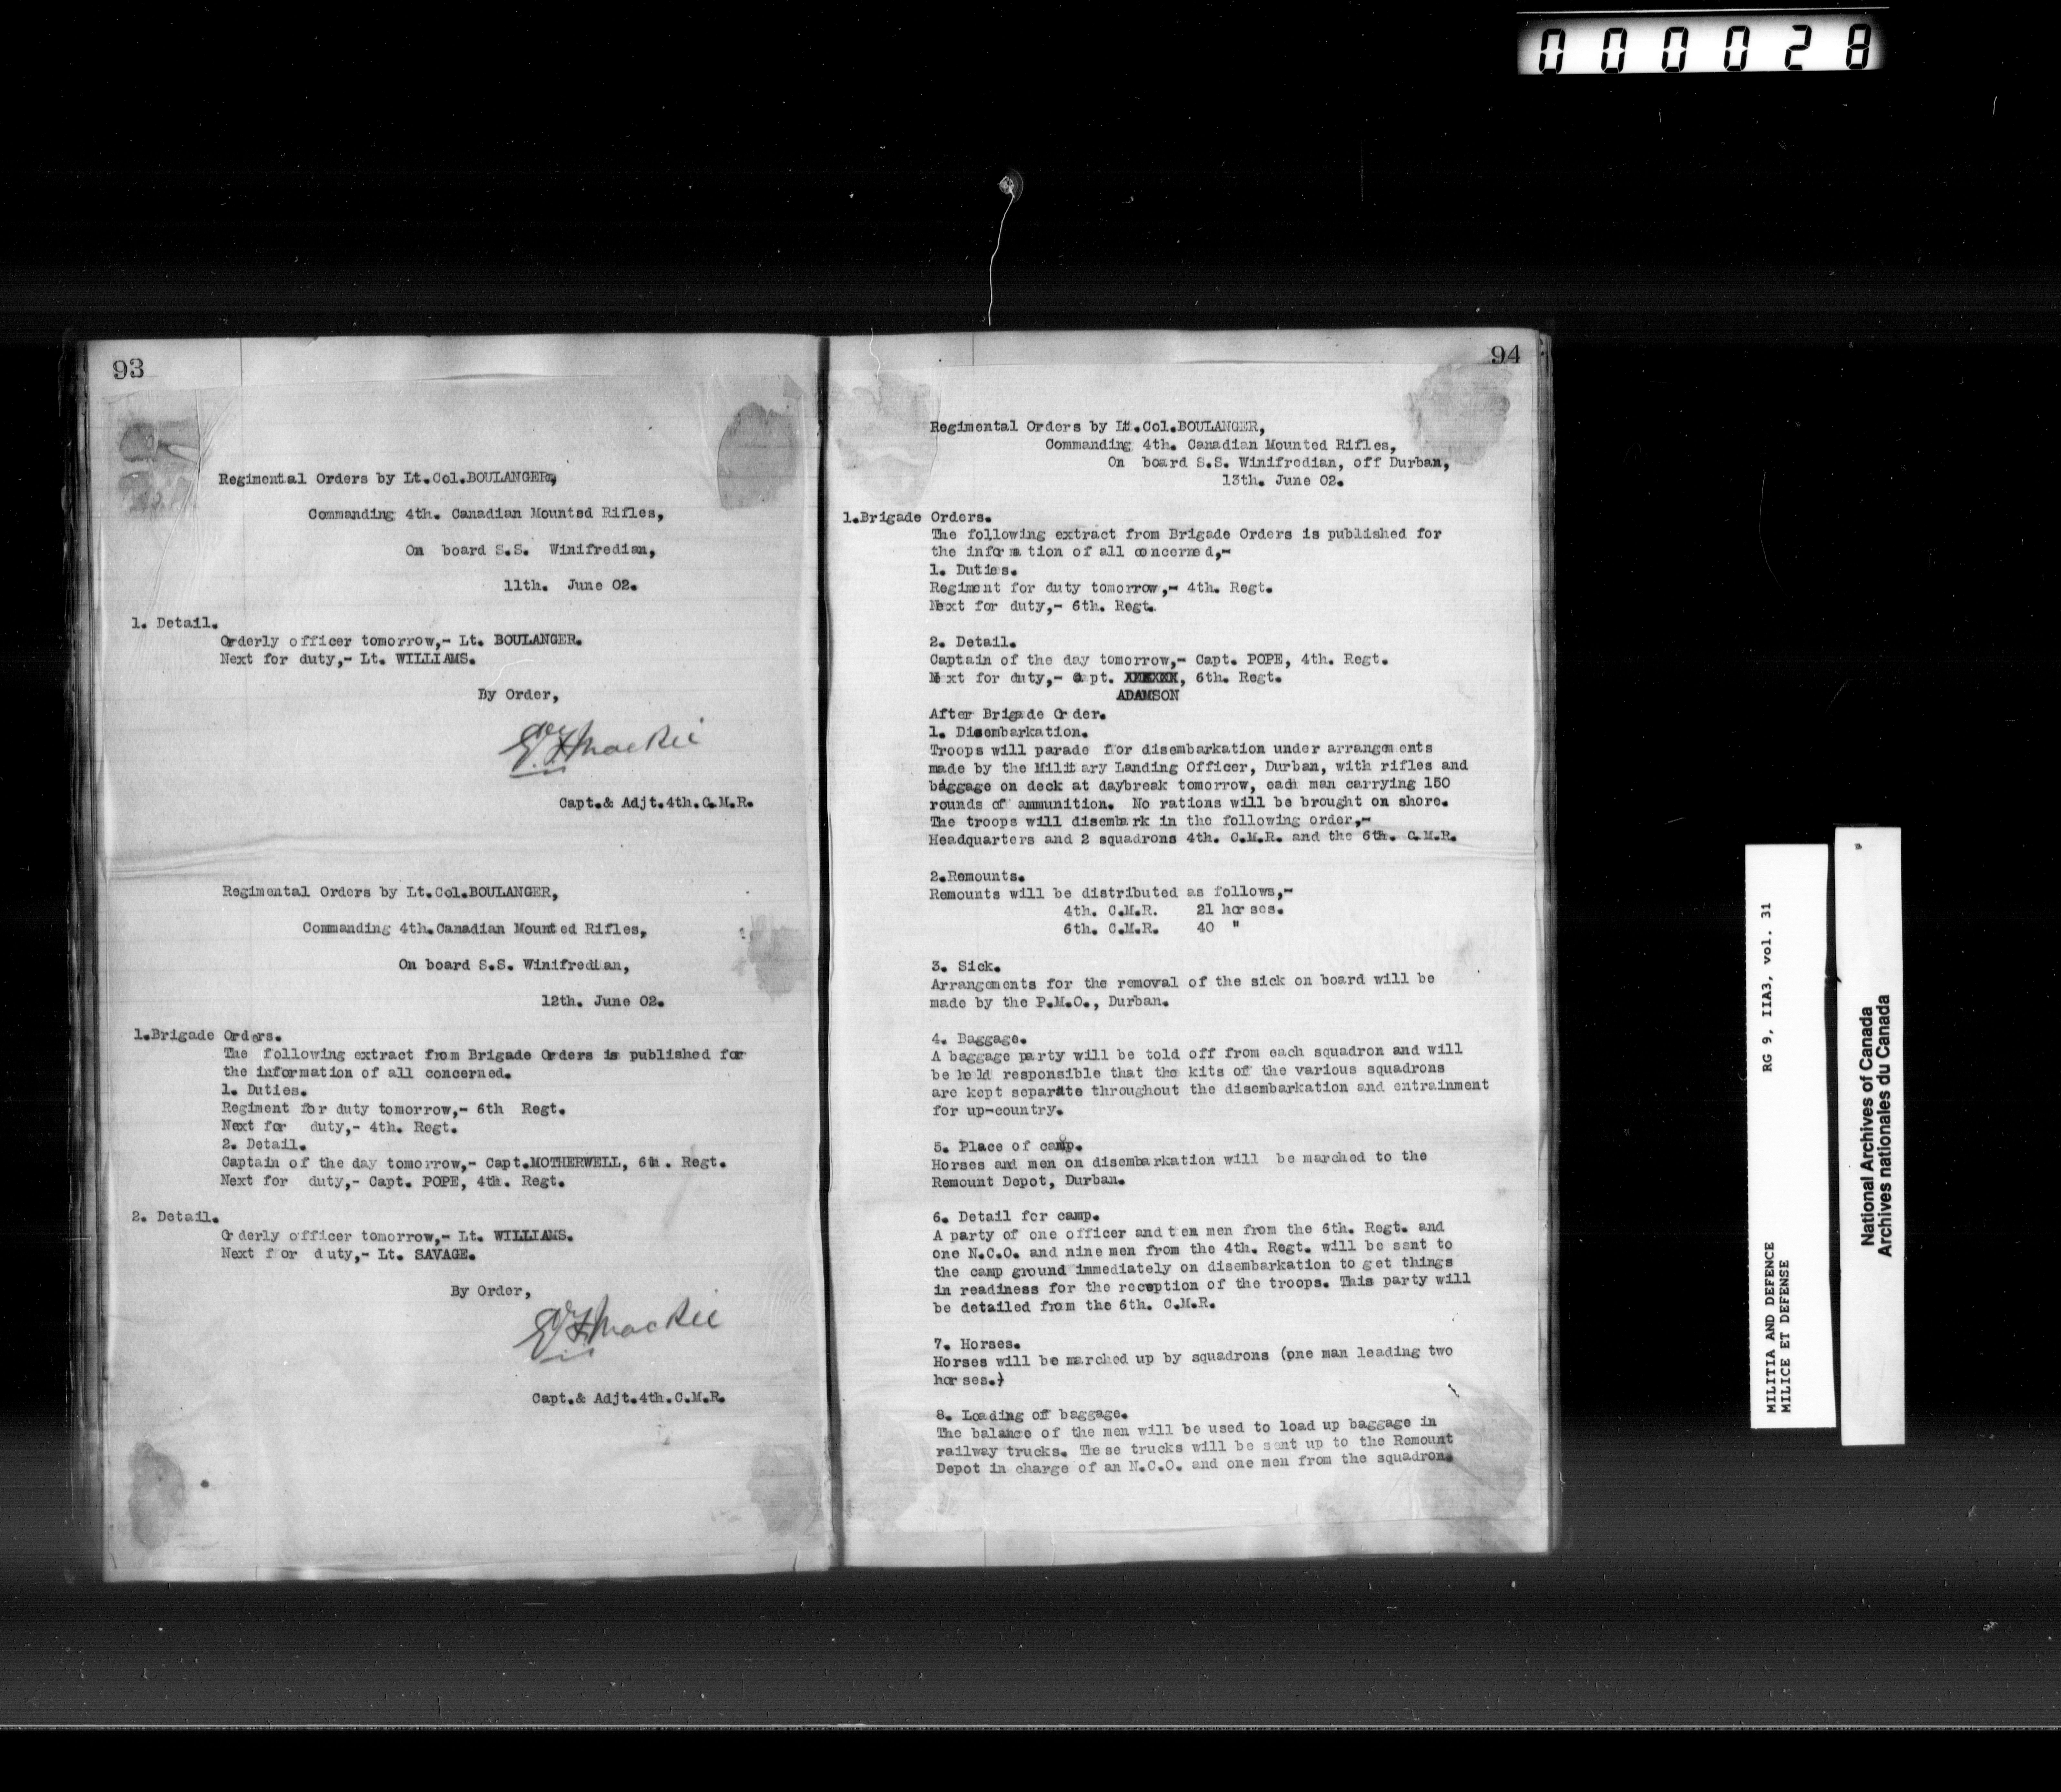 000028
93
Regimental Orders by Lt.Col.BOULANGER,
Commanding 4th. Canadian Mounted Rifles,
On board S.S. Winifredian,
11th. June 02.
1. Detail.
Orderly officer tomorrow,- Lt. BOULANGER.
Next for duty,- Lt. WILLIAMS.
By Order,
Capt.& Adjt.4th.C.M.R.
Regimental Orders by Lt.Col.BOULANGER,
Commanding 4th.Canadian Mounted Rifles,
On board S.S. Winifredian,
12th. June 02.
1.Brigade Orders.
The following extract from Brigade Orders is published for
the information of all concerned.
1. Duties.
Regiment for duty tomorrow,- 6th Regt.
Next for duty,- 4th. Regt.
2. Detail.
Captain of the day tomorrow,- Capt.MOTHERWELL, 6th. Regt.
Next for duty,- Capt. POPE, 4th. Regt.
2. Detail.
Orderly officer tomorrow,- Lt. WILLIAMS.
Next for duty,- Lt. SAVAGE.
By Order,
Capt.& Adjt.4th.C.M.R.
94
Regimental Orders by Lt.Col.BOULANGER,
Commanding 4th. Canadian Mounted Rifles,
On board S.S. Winifredian, off Durban,
13th. June 02.
1.Brigade Orders.
The following extract from Brigade Orders is published for
the information of all concerned,-
1. Duties.
Regiment for duty tomorrow,- 4th. Regt.
Next for duty,- 6th. Regt.
2. Detail.
Captain of the day tomorrow,- Capt. POPE, 4th. Regt.
Next for duty,- Capt. XXXXXX, 6th. Regt.
ADAMSON
After Brigade Order.
1. Disembarkation.
Troops will parade for disembarkation under arrangements
made by the Military Landing Officer, Durban, with rifles and
baggage on deck at daybreak tomorrow, each man carrying 150
rounds of ammunition. No rations will be brought on shore.
The troops will disembark in the following order,-
Headquarters and 2 squadrons 4th. C.M.R. and the 6th. C.M.R.
2.Remounts.
Remounts will be distributed as follows,-
4th. C.M.R. 21 horses.
6th. C.M.R. 40 "
3. Sick.
Arrangements for the removal of the sick on board will be
made by the P.M.O., Durban.
4. Baggage.
A baggage party will be told off from each squadron and will
be held responsible that the kits of the various squadrons
are kept separate throughout the disembarkation and entrainment
for up-country.
5. Place of camp.
Horses and men on disembarkation will be marched to the
Remount Depot, Durban.
6. Detail for camp.
A party of one officer and ten men from the 6th. Regt. and
one N.C.O. and nine men from the 4th. Regt. will be sent to
the camp ground immediately on disembarkation to get things
in readiness for the reception of the troops. This party will
be detailed from the 6th. C.M.R.
7. Horses.
Horses will be marched up by squadrons (one man leading two
horses.)
8. Loading of baggage.
The balance of the men will be used to load up baggage in
railway trucks. These trucks will be sent up to the Remount
Depot in charge of an N.C.O. and one men from the squadron.
MILITIA AND DEFENCE RG 9, IIA3, vol. 31
MILICE ET DEFENSE
National Archives of Canada
Archives nationales du Canada